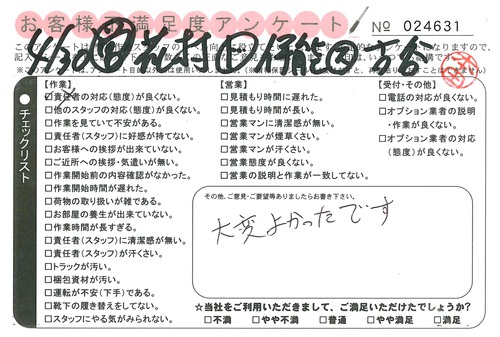 お客様ご満足度アンケート
№ 024631
【作業】
□責任者の対応(態度)が良くない。
□他のスタッフの対応(態度)が良くない。
□作業を見ていて不安がある。
□責任者(スタッフ)に好感が持てない。
□お客様への挨拶が出来ていない。
□ご近所への挨拶・気遣いが無い。
□作業開始前の内容確認がなかった。
□作業開始時間が遅れた。
□荷物の取り扱いが雑である。
□お部屋の養生が出来ていない。
□作業時間が長すぎる。
□責任者(スタッフ)に清潔感が無い。
□責任者(スタッフ)が汗くさい。
□トラックが汚い。
□梱包資材が汚い。
□運転が不安(下手)である。
□靴下の履き替えをしてない。
□スタッフにやる気がみられない。
【営業】
□見積もり時間に遅れた。
□見積もり時間が長い。
□営業マンに清潔感が無い。
□営業マンが煙草くさい。
□営業マンが汗くさい。
□営業態度が良くない。
□営業の説明と作業が一致してない。
【受付・その他】
□電話の対応が良くない。
□オプション業者の説明
・作業が良くない。
□オプション業者の対応
(態度)が良くない。
チェックリスト
その他、ご意見・ご要望等ありましたらお書き下さい。
大変よかったです
☆当社をご利用いただきまして、ご満足いただけたでしょうか?
□不満 □やや不満 □普通 □やや満足 □満足